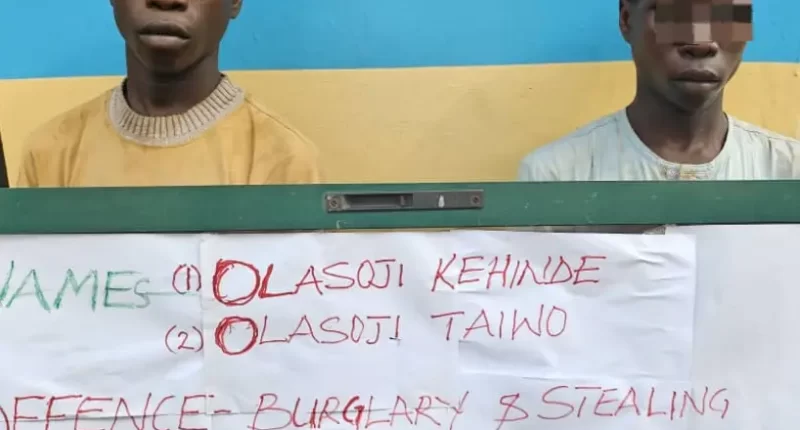 NAMES (1) OLASOJI KEHINDE
(2) OLASOJI TAIWO
OFFENCE- BURGLARY & STEALING